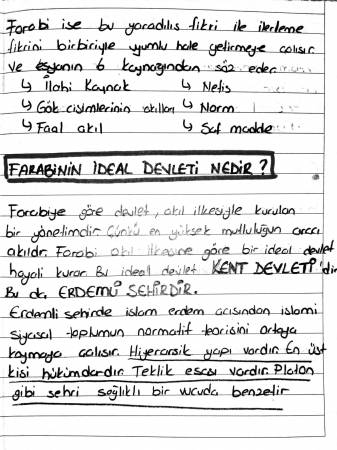 Farabi ise bu yaradılış fikri ile ilerleme
fikrini birbiriyle uyumlu hale getirmeye çalışır
ve eşyanın 6 kaynağından söz eder
↳ İlahi Kaynak ↳ Nefis
↳ Gök cisimlerinin akılları ↳ Norm
↳ Faal akıl ↳ Saf madde
FARABİNİN İDEAL DEVLETİ NEDİR ?
Farabiye göre devlet, akıl ilkesiyle kurulan
bir yönetimdir. Çünkü en yüksek mutluluğun aracı
akıldır. Farabi akıl ilkesine göre bir ideal devlet
hayali kurar. Bu ideal devlet KENT DEVLETİ'dir
Bu da, ERDEMLİ ŞEHİRDİR.
Erdemli şehirde islam erdem açısından islami
siyasal toplumun normatif teorisini ortaya
koymaya çalışır. Hiyerarşik yapı vardır. En üst
kişi hükümdardır. Teklik esası vardır. Platon
gibi şehri sağlıklı bir vucuda benzetir